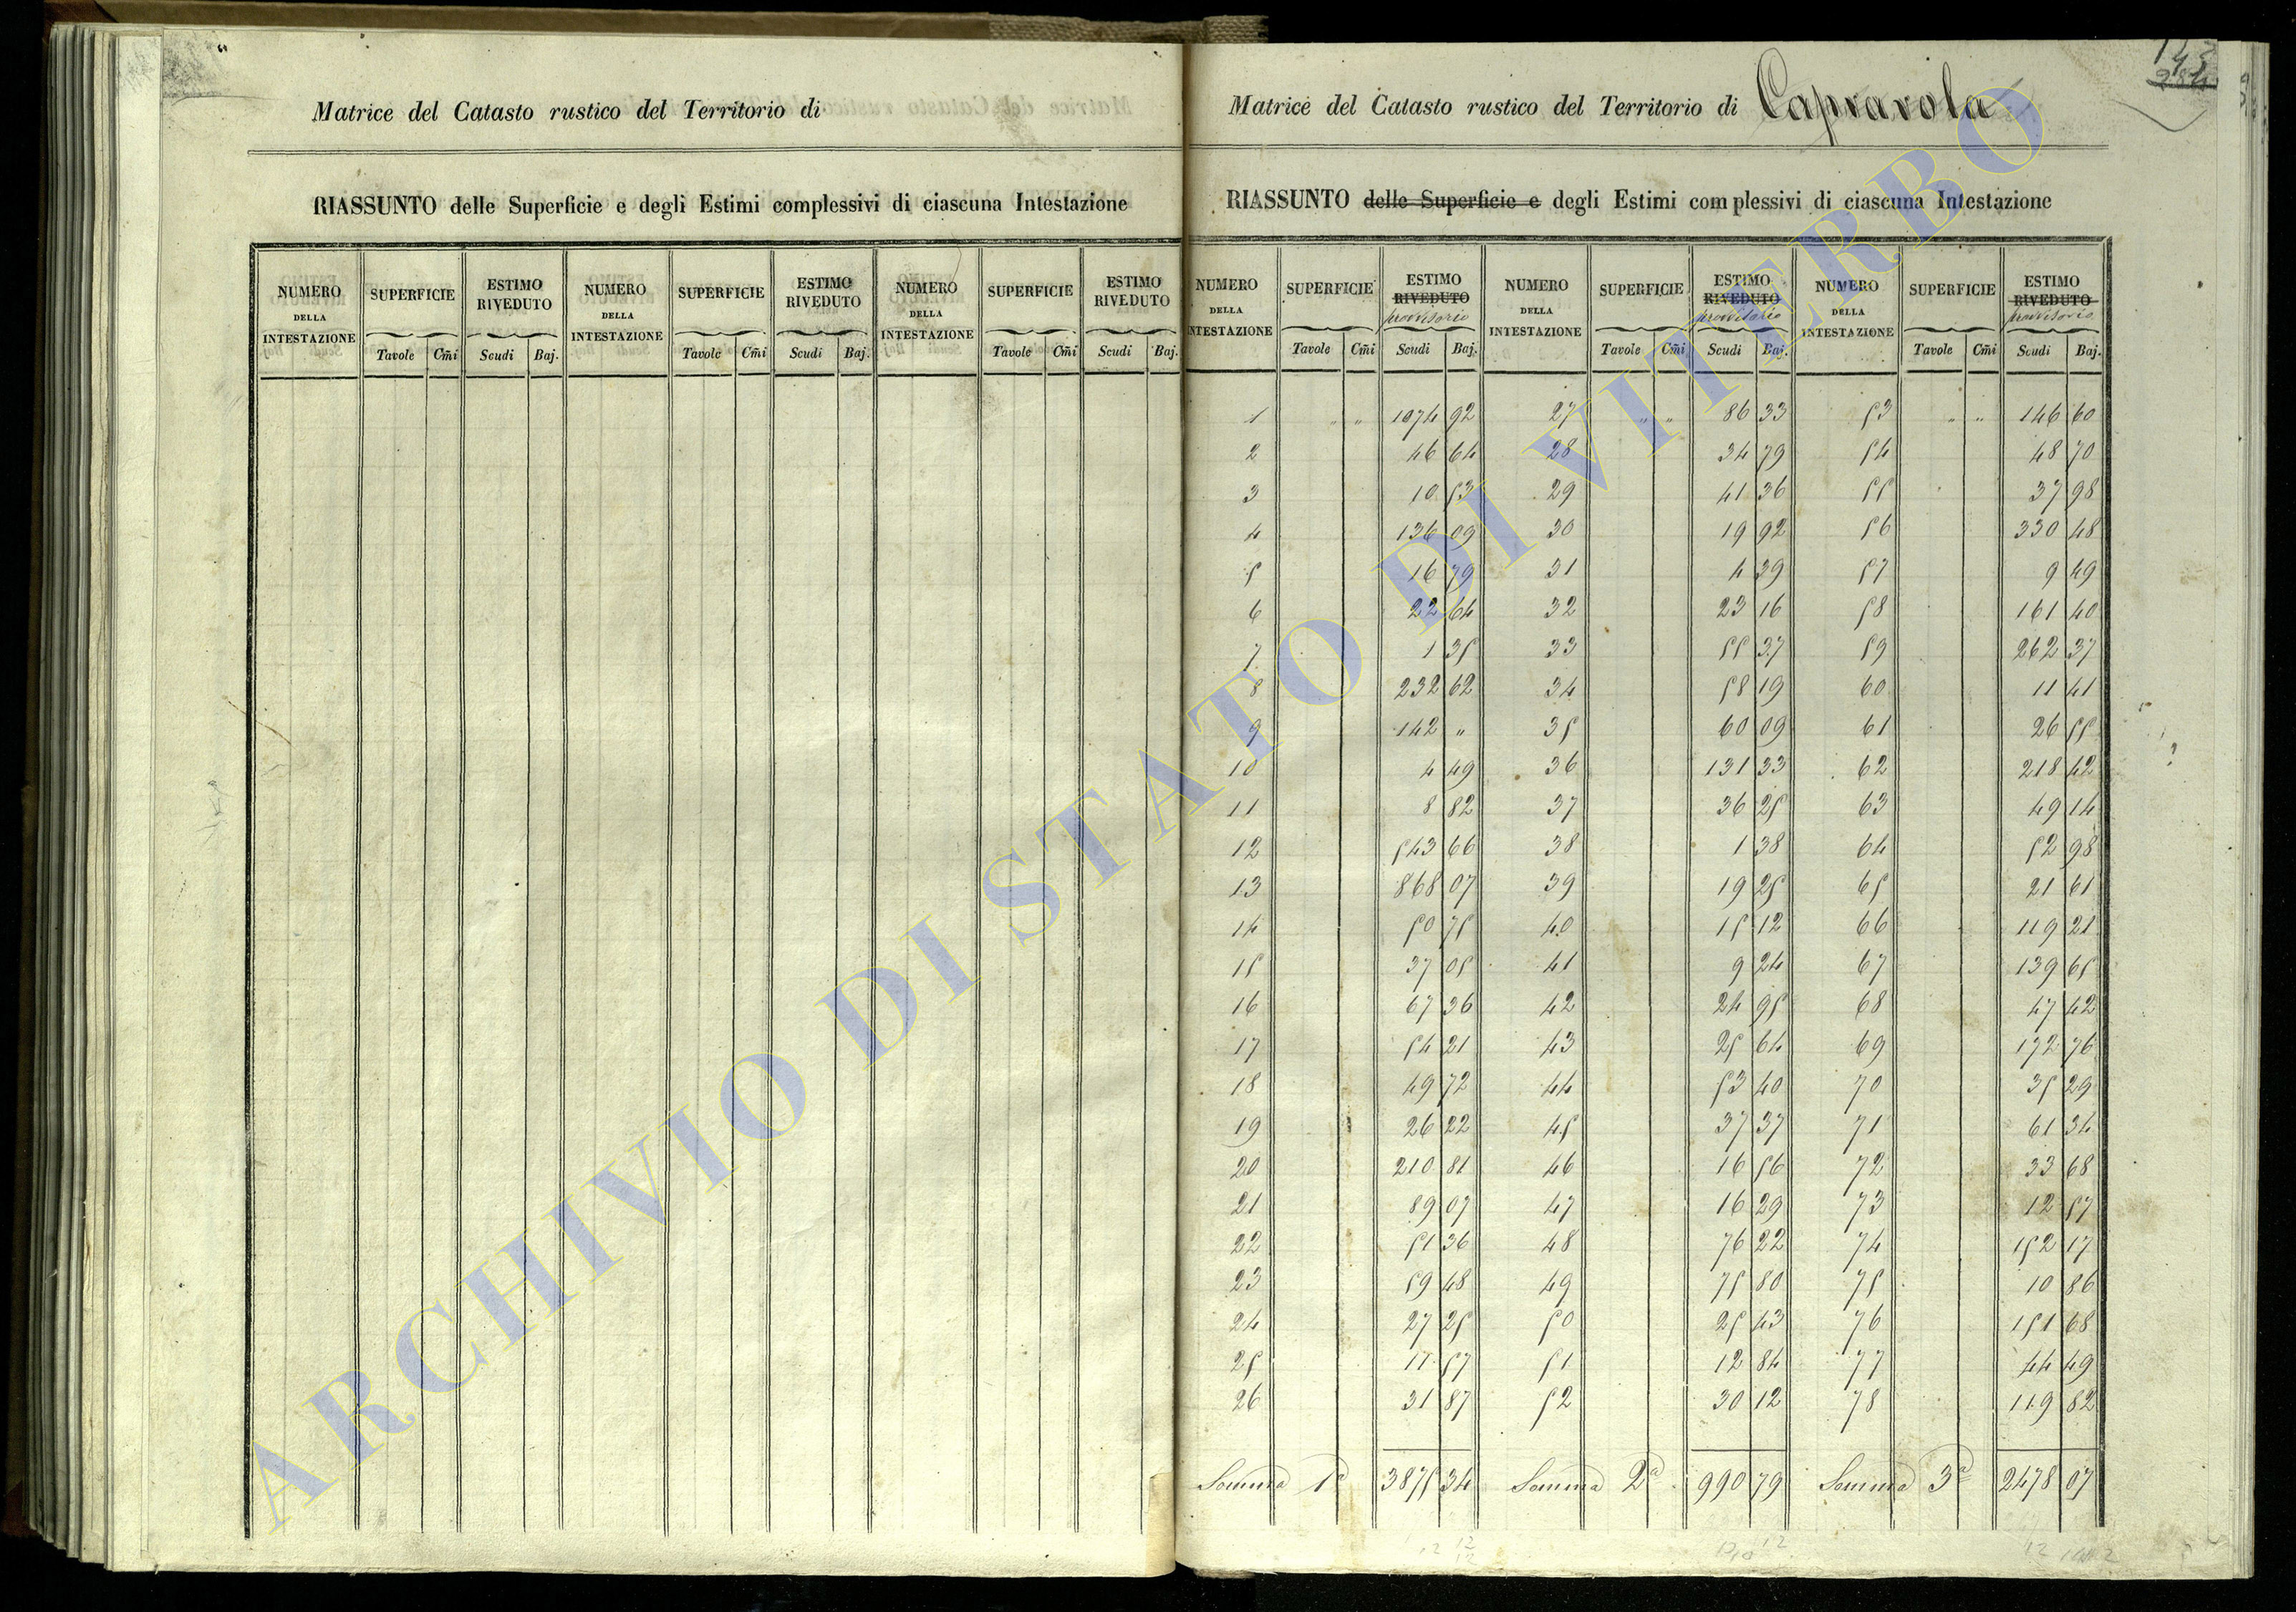 Matrice del Catasto rustico del Territorio di
RIASSUNTO delle Superficie e degli Estimi complessivi di ciascuna Intestazione
NUMERO DELLA INTESTAZIONE SUPERFICIE ESTIMO RIVEDUTO NUMERO DELLA INTESTAZIONE SUPERFICIE ESTIMO RIVEDUTO NUMERO DELLA INTESTAZIONE SUPERFICIE ESTIMO RIVEDUTO
Tavole Cm̃i Scudi Baj. Tavole Cm̃i Scudi Baj. Tavole Cm̃i Scudi Baj.
143
284
Matrice del Catasto rustico del Territorio di Caprarola
RIASSUNTO delle Superficie e degli Estimi complessivi di ciascuna Intestazione
NUMERO DELLA INTESTAZIONE SUPERFICIE ESTIMO RIVEDUTO provvisorio NUMERO DELLA INTESTAZIONE SUPERFICIE ESTIMO RIVEDUTO provvisorio NUMERO DELLA INTESTAZIONE SUPERFICIE ESTIMO RIVEDUTO provvisorio
Tavole Cm̃i Scudi Baj. Tavole Cm̃i Scudi Baj. Tavole Cm̃i Scudi Baj.
1 " " 1074 92 27 " " 86 33 53 " " 146 60
2 46 64 28 34 79 54 48 70
3 10 53 29 41 36 55 37 98
4 136 09 30 19 92 56 330 48
5 16 79 31 4 39 57 9 49
6 22 64 32 23 16 58 161 40
7 1 35 33 55 37 59 262 37
8 232 62 34 58 19 60 11 41
9 142 " 35 60 09 61 26 55
10 4 49 36 131 33 62 218 42
11 8 82 37 36 25 63 49 14
12 543 66 38 1 38 64 52 98
13 868 07 39 19 25 65 21 61
14 50 75 40 15 12 66 119 21
15 37 05 41 9 24 67 139 65
16 67 36 42 24 95 68 47 42
17 54 21 43 25 64 69 172 76
18 49 72 44 53 40 70 35 29
19 26 22 45 37 37 71 61 34
20 210 81 46 16 56 72 33 68
21 89 07 47 16 29 73 12 57
22 51 36 48 76 22 74 152 17
23 59 48 49 75 80 75 10 86
24 27 25 50 25 43 76 151 68
25 11 57 51 12 84 77 44 49
26 31 87 52 30 12 78 119 82
Somma 1ª 3875 34 Somma 2ª 990 79 Somma 3ª 2478 07
ARCHIVIO DI STATO DI VITERBO